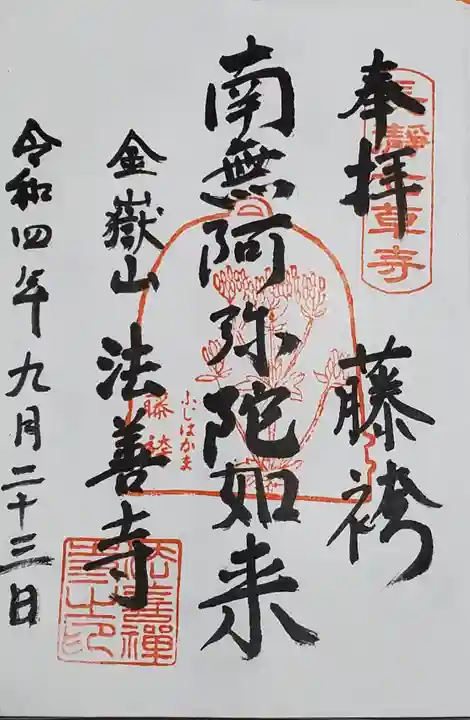 奉拝 藤袴
長瀞七草寺
南無阿弥陀如来
ふじばかま
藤袴
金嶽山 法善寺
令和四年九月二十三日